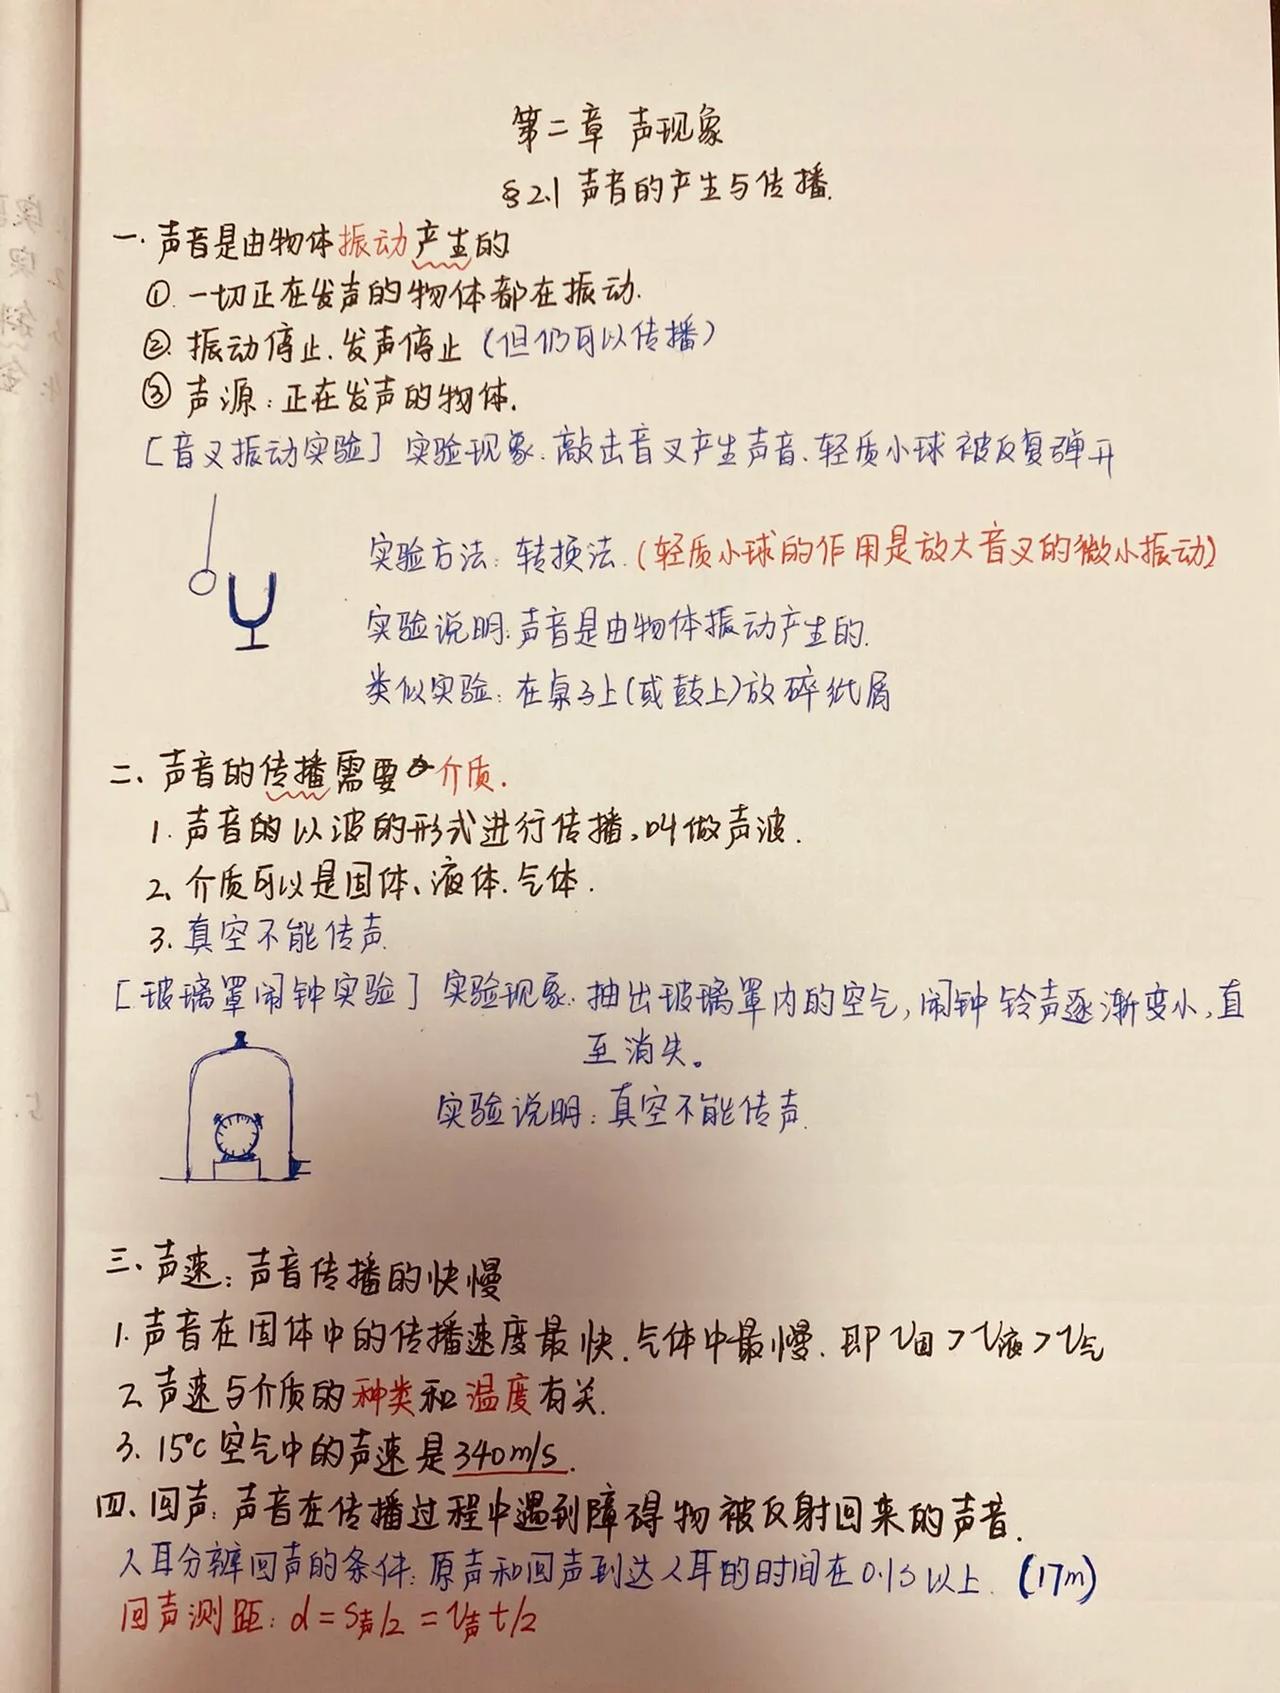 第二章 声现象
§2.1 声音的产生与传播.
一. 声音是由物体振动产生的
①. 一切正在发声的物体都在振动.
②. 振动停止.发声停止（但仍可以传播）
③ 声源：正在发声的物体.
[音叉振动实验] 实验现象：敲击音叉产生声音.轻质小球被反复弹开
实验方法：转换法.(轻质小球的作用是放大音叉的微小振动)
实验说明：声音是由物体振动产生的.
类似实验：在桌子上(或鼓上)放碎纸屑
二、声音的传播需要介质.
1. 声音的以波的形式进行传播,叫做声波.
2、介质可以是固体、液体.气体.
3. 真空不能传声.
[玻璃罩闹钟实验] 实验现象：抽出玻璃罩内的空气,闹钟铃声逐渐变小,直
至消失。
实验说明：真空不能传声.
三、声速：声音传播的快慢
1. 声音在固体中的传播速度最快.气体中最慢.即 v固>v液>v气
2. 声速与介质的种类和温度有关.
3. 15℃空气中的声速是340m/s.
四、回声：声音在传播过程中遇到障碍物被反射回来的声音.
人耳分辨回声的条件：原声和回声到达人耳的时间在0.1s以上. (17m)
回声测距：d=s声/2=v声t/2